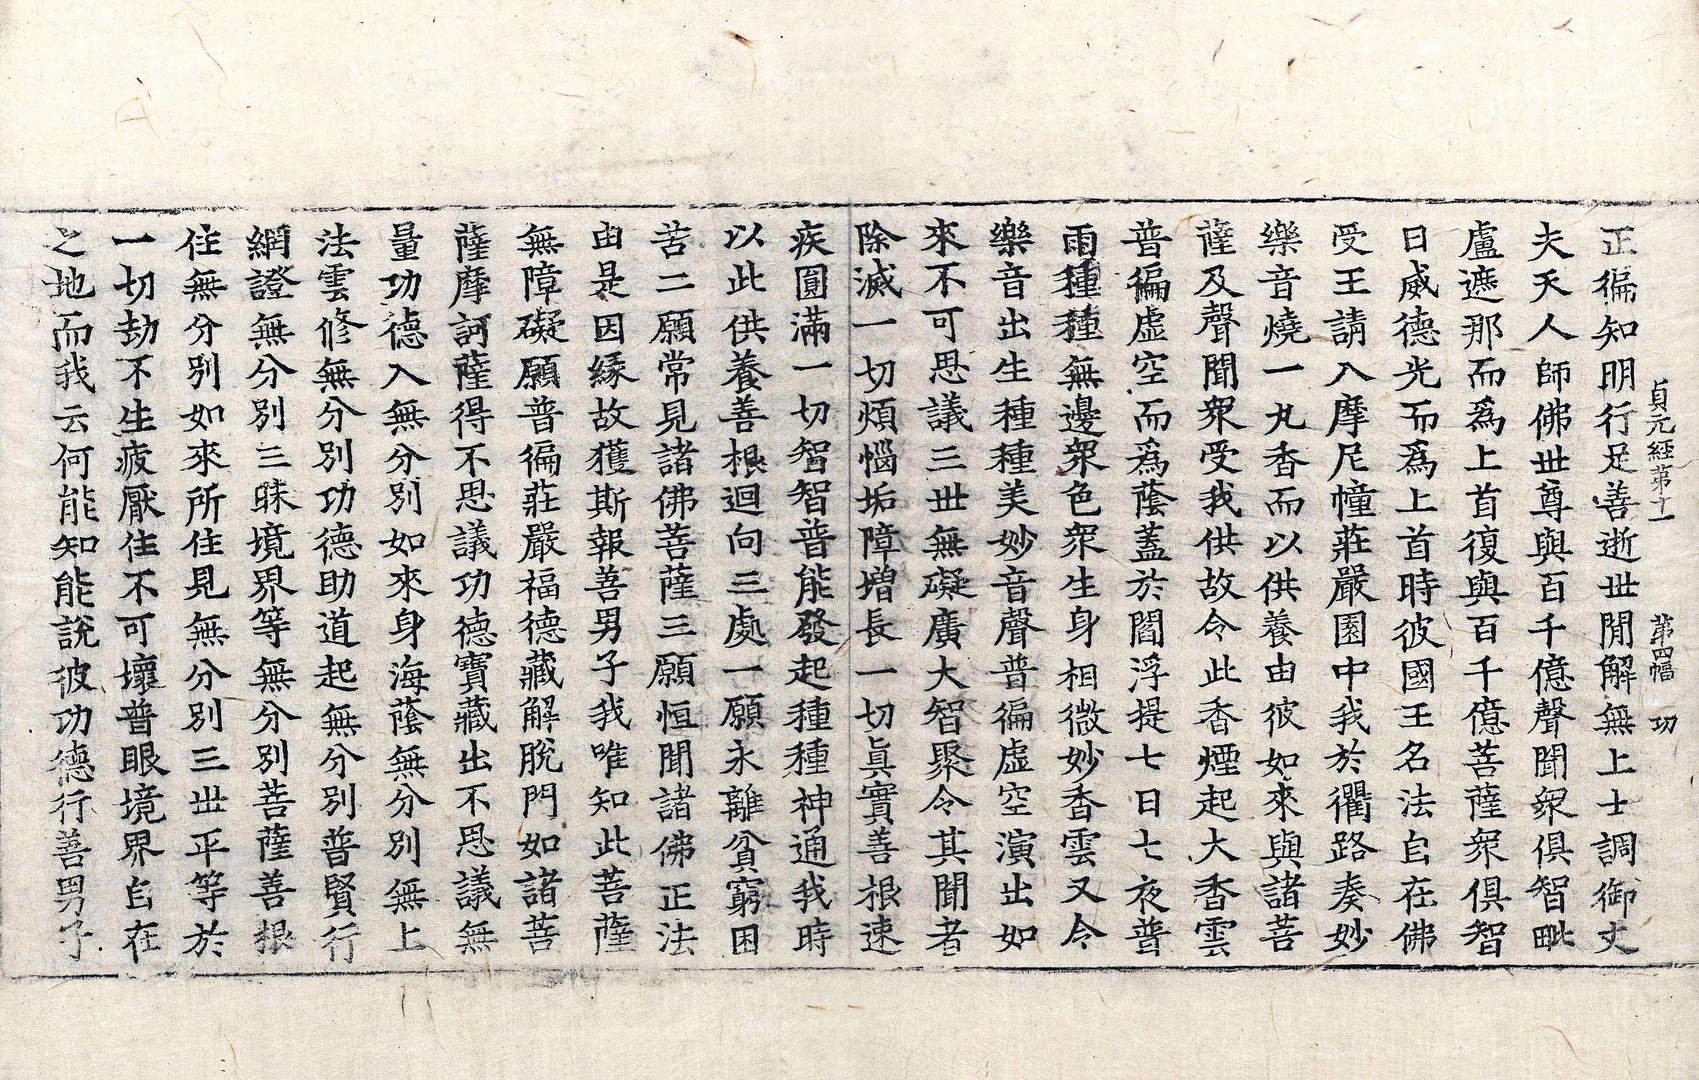 貞元經第十一 第四幅 功
正徧知明行足善逝世閒解無上士調御丈
夫天人師佛世尊與百千億聲聞衆俱智毗
盧遮那而爲上首復與百千億菩薩衆俱智
日威德光而爲上首時彼國王名法自在佛
受王請入摩尼幢莊嚴園中我於衢路奏妙
樂音燒一丸香而以供養由彼如來與諸菩
薩及聲聞衆受我供故令此香煙起大香雲
普徧虛空而爲蔭蓋於閻浮提七日七夜普
雨種種無邊衆色衆生身相微妙香雲又令
樂音出生種種美妙音聲普徧虛空演出如
來不可思議三世無礙廣大智聚令其聞者
除滅一切煩惱垢障增長一切眞實善根速
疾圓滿一切智智普能發起種種神通我時
以此供養善根迴向三處一願永離貧窮困
苦二願常見諸佛菩薩三願恒聞諸佛正法
由是因緣故獲斯報善男子我唯知此菩薩
無障礙願普徧莊嚴福德藏解脫門如諸菩
薩摩訶薩得不思議功德寶藏出不思議無
量功德入無分別如來身海蔭無分別無上
法雲修無分別功德助道起無分別普賢行
網證無分別三昧境界等無分別菩薩善根
住無分別如來所住見無分別三世平等於
一切劫不生疲厭住不可壞普眼境界自在
之地而我云何能知能說彼功德行善男子